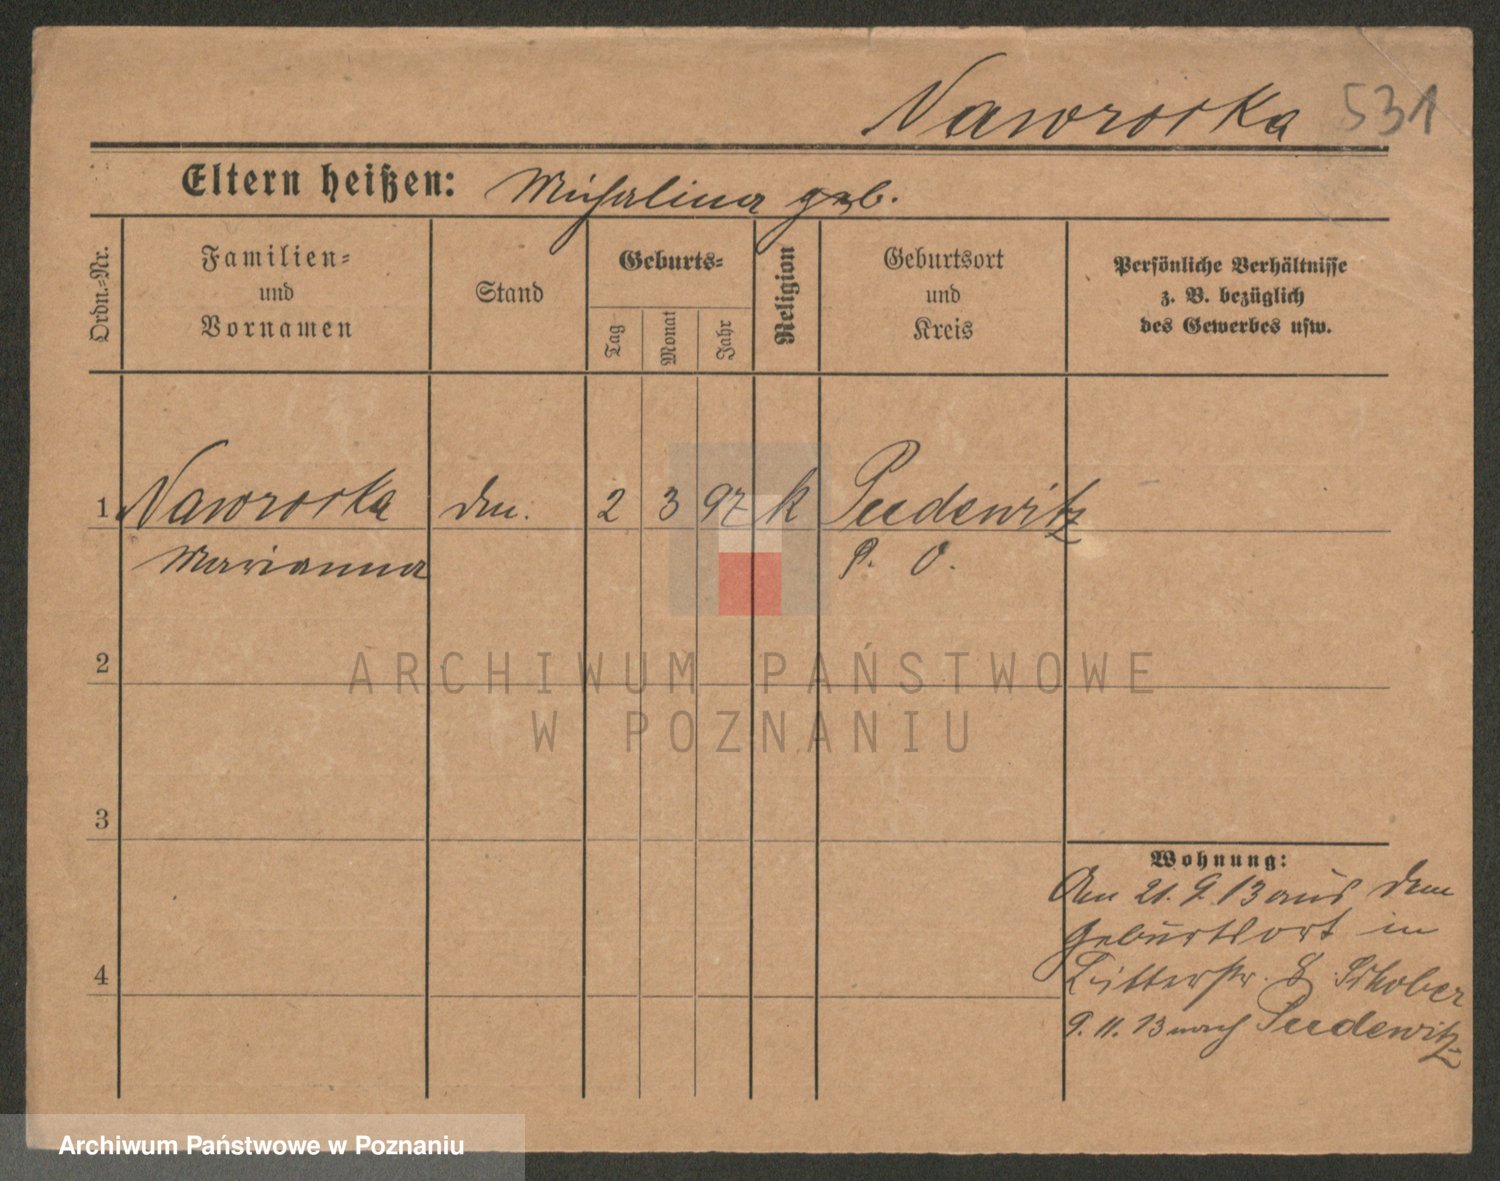 Nawrocka 531
Eltern heißen: Michalina geb.
Ordn.-Nr.
Familien-
und
Vornamen
Stand
Geburts-
Tag
Monat
Jahr
Religion
Geburtsort
und
Kreis
Persönliche Verhältnisse
z. B. bezüglich
des Gewerbes usw.
1 Nawrocka 2 3 97 k Pudewitz
Marianna P. O.
2
ARCHIWUM PAŃSTWOWE
W POZNANIU
3
Wohnung:
Am 21. 9. 13 aus dem
Geburtsort in
Ritterstr. 8 Schober
4
9. 11. 13 nach Pudewitz
Archiwum Państwowe w Poznaniu